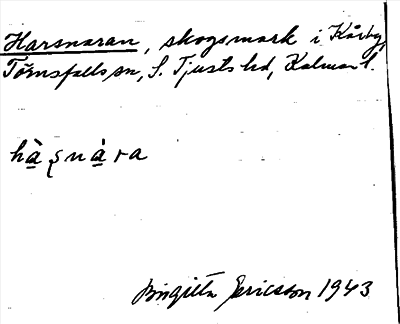 Harsnaran, skogsmark i Kårby,
Törnsfalls sn, S. Tjusts hd, Kalmar l.
hà̱ʂnà̱ra
Birgitta Ericsson 1943